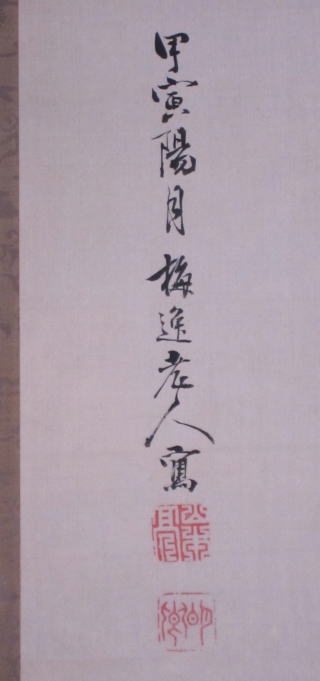 甲寅陽月梅逸老人寫